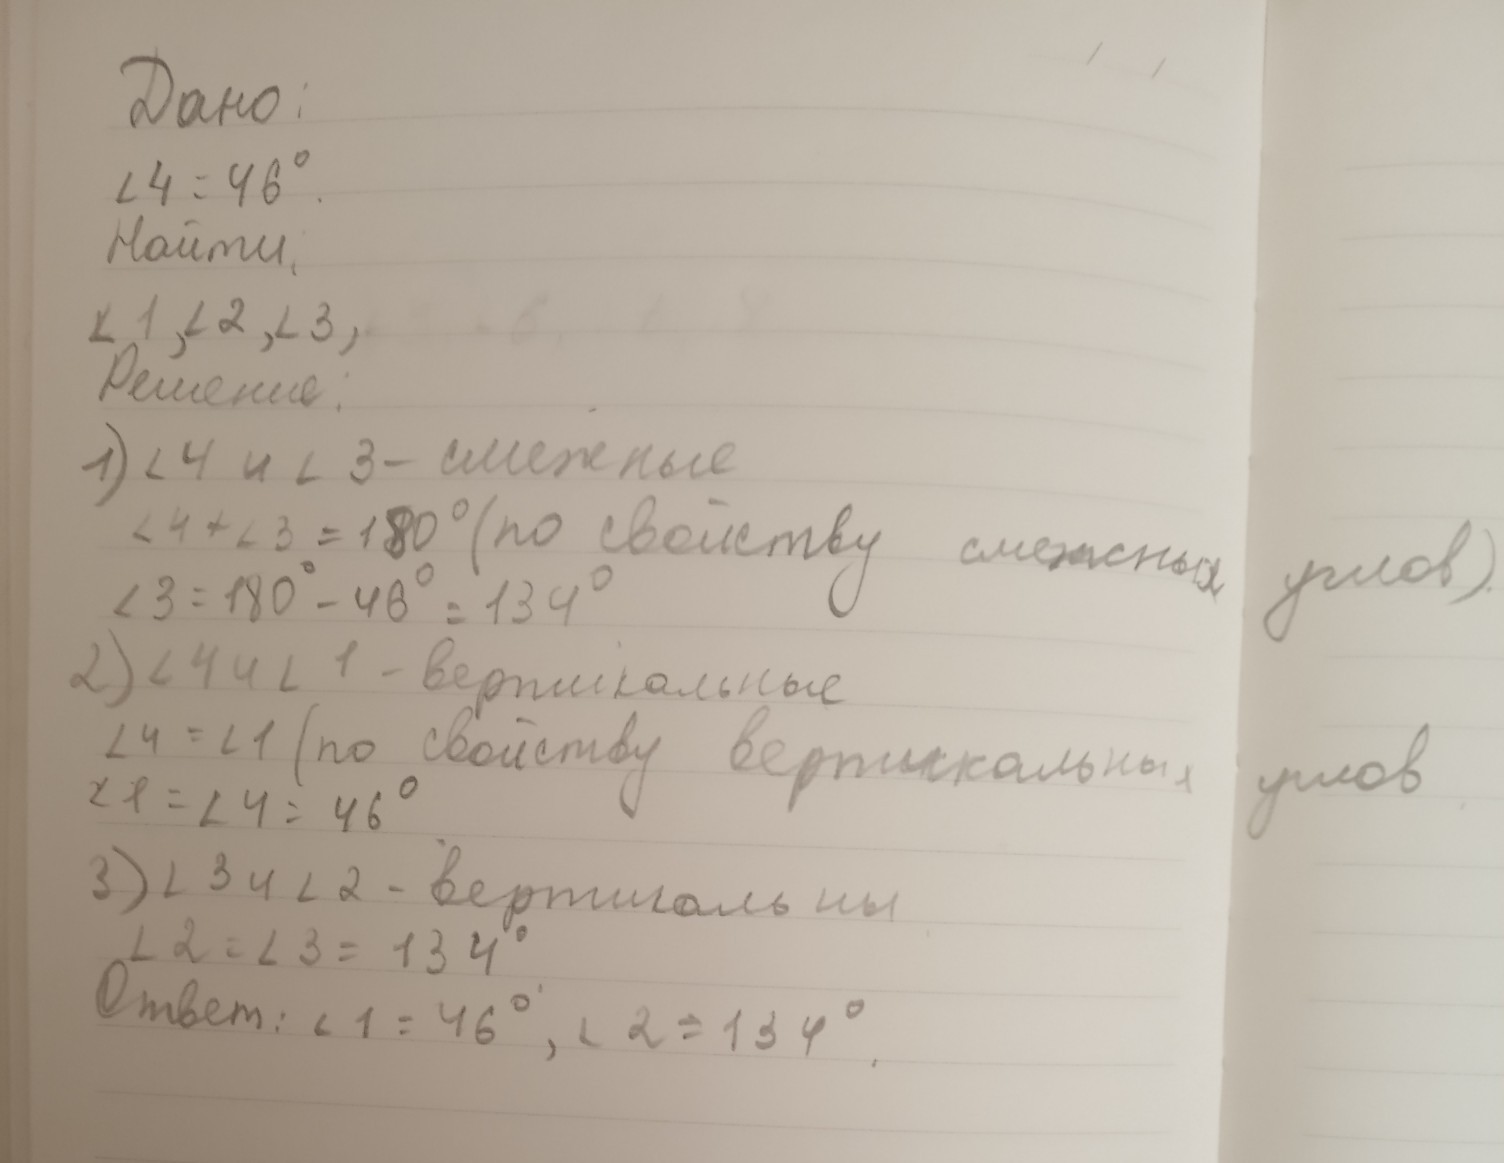 Дано:
∠4 = 46°.
Найти:
∠1, ∠2, ∠3,
Решение:
1) ∠4 и ∠3 - смежные
∠4 + ∠3 = 180° (по свойству смежных углов).
∠3 = 180° - 46° = 134°
2) ∠4 и ∠1 - вертикальные
∠4 = ∠1 (по свойству вертикальных углов
∠1 = ∠4 = 46°
3) ∠3 и ∠2 - вертикальны
∠2 = ∠3 = 134°
Ответ: ∠1 = 46°, ∠2 = 134°.